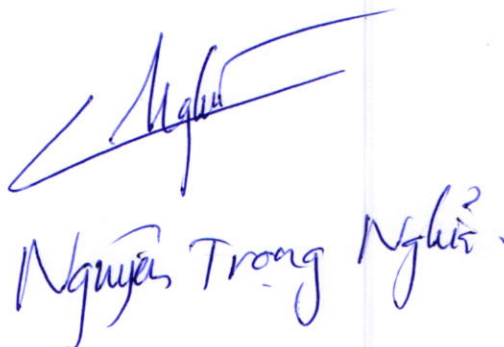 Nghĩ
Nguyễn Trọng Nghĩ